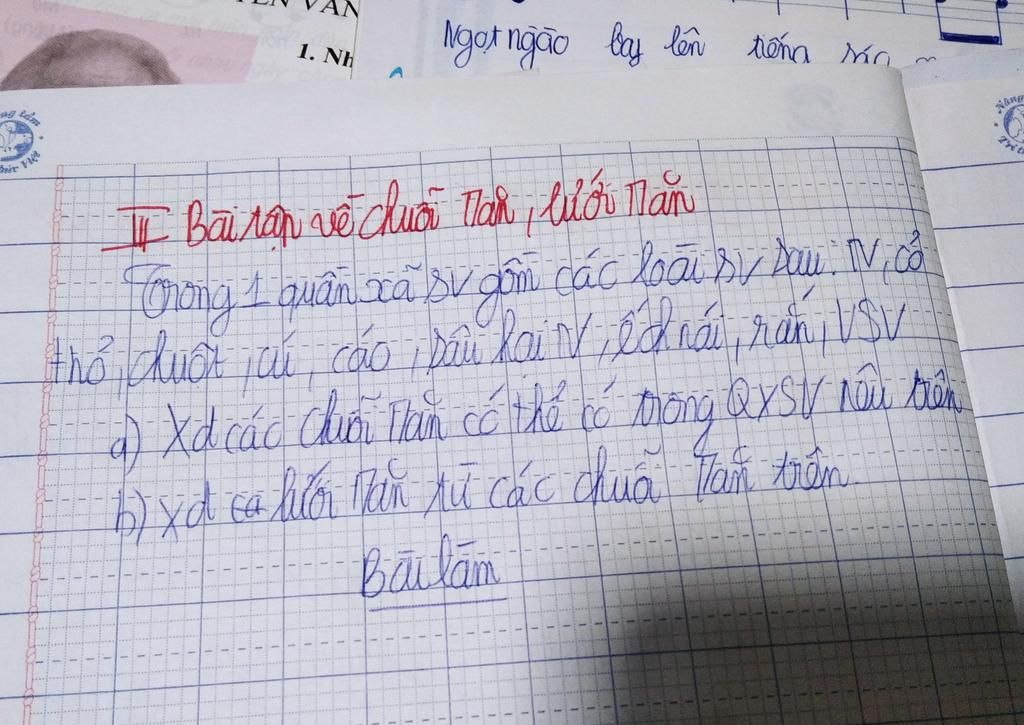 YỄN VĂN
1. Nh
Ngọt ngào bay lên tiếng
III Bài tập về chuỗi T.ăn, lưới T.ăn
Trong 1 quần xã SV gồm các loài SV sau: TV, cỏ
thỏ, chuột, cú, cáo, sâu hại TV, ếch nhái, rắn, VSV
a) Xd các chuỗi T.ăn có thể có trong QXSV nêu trên
b) Xd lưới T.ăn từ các chuỗi T.ăn trên.
Bài làm